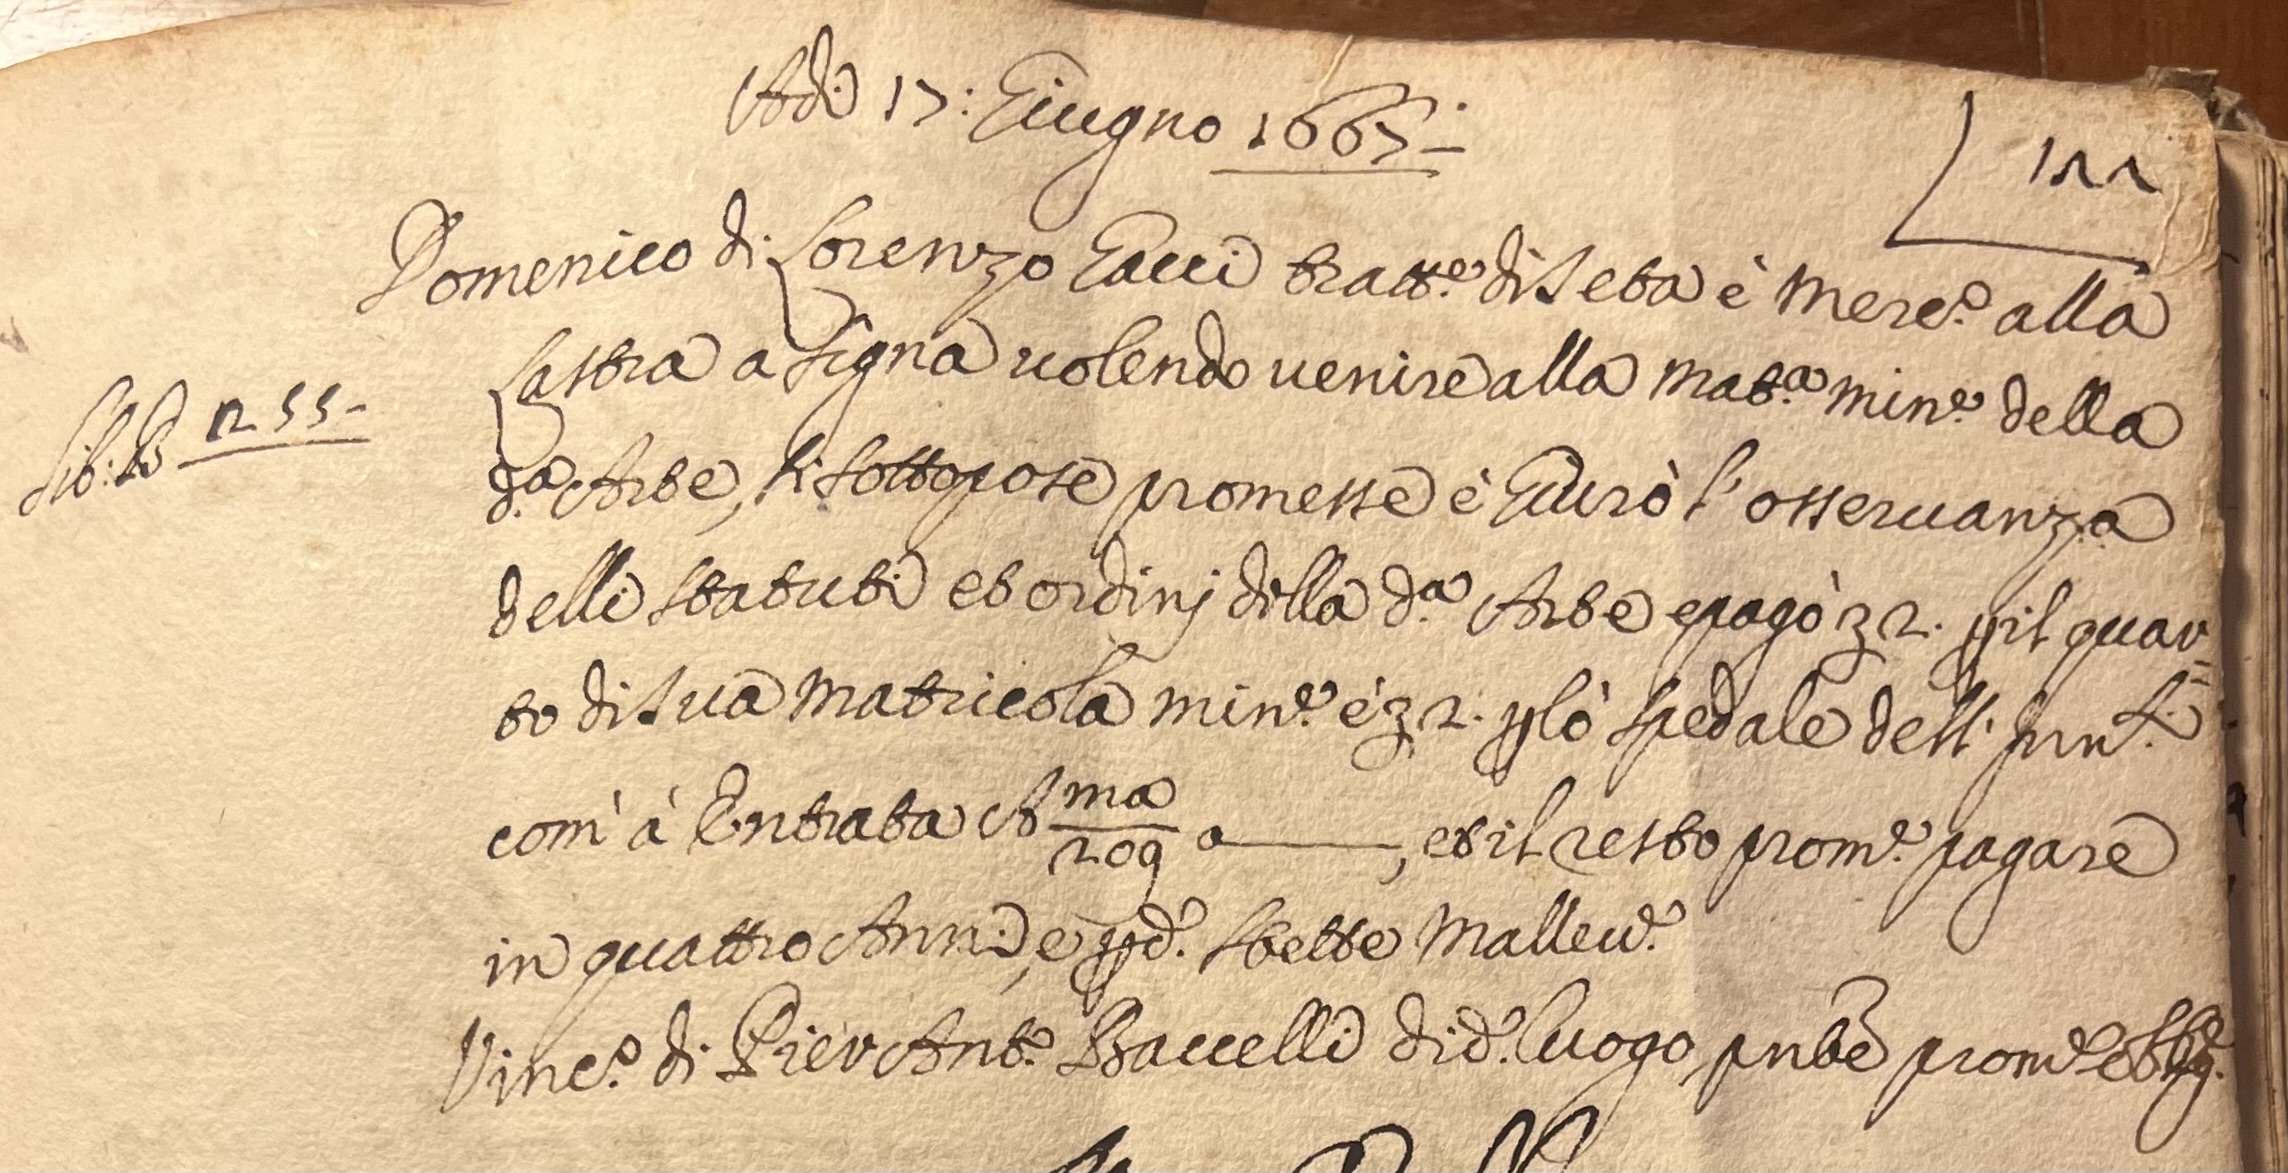 Adi 17: Giugno 1667-
122
Domenico di Lorenzo Gacci tratt.e di Seta è Merc.o alla
Lastra a Signa uolendo uenire alla Mat.a min.e della
Lib: B 255-
d.a Arte, si sottopose promesse è Giurò l'osseruanza
delli Statuti et ordinj della d.a Arte e pagò 2. p il quar=
to di sua Matricola min.e è 2. p lò spedale dell'
com' à Entrata A ma 209 a ——, et il resto prom.e pagare
in quattro Anni, e p d.o stette Malleu.e
Vinc.o di Pier Ant.o Baccelli di d.o luogo pnte prom.e obblig.